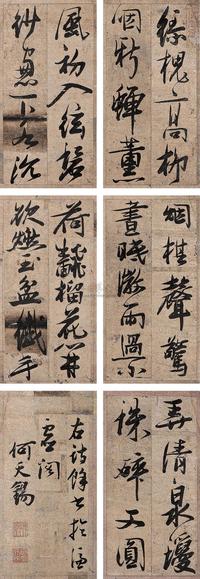 綠槐高柳
咽新蟬薰
風初入絃碧
紗窗下水沉
烟棋聲驚
晝眠微雨過小
荷翻榴花開
欲燃玉盆纖手
弄清泉瓊
珠碎又圓
右詩餘書於
虛閣
何天錫